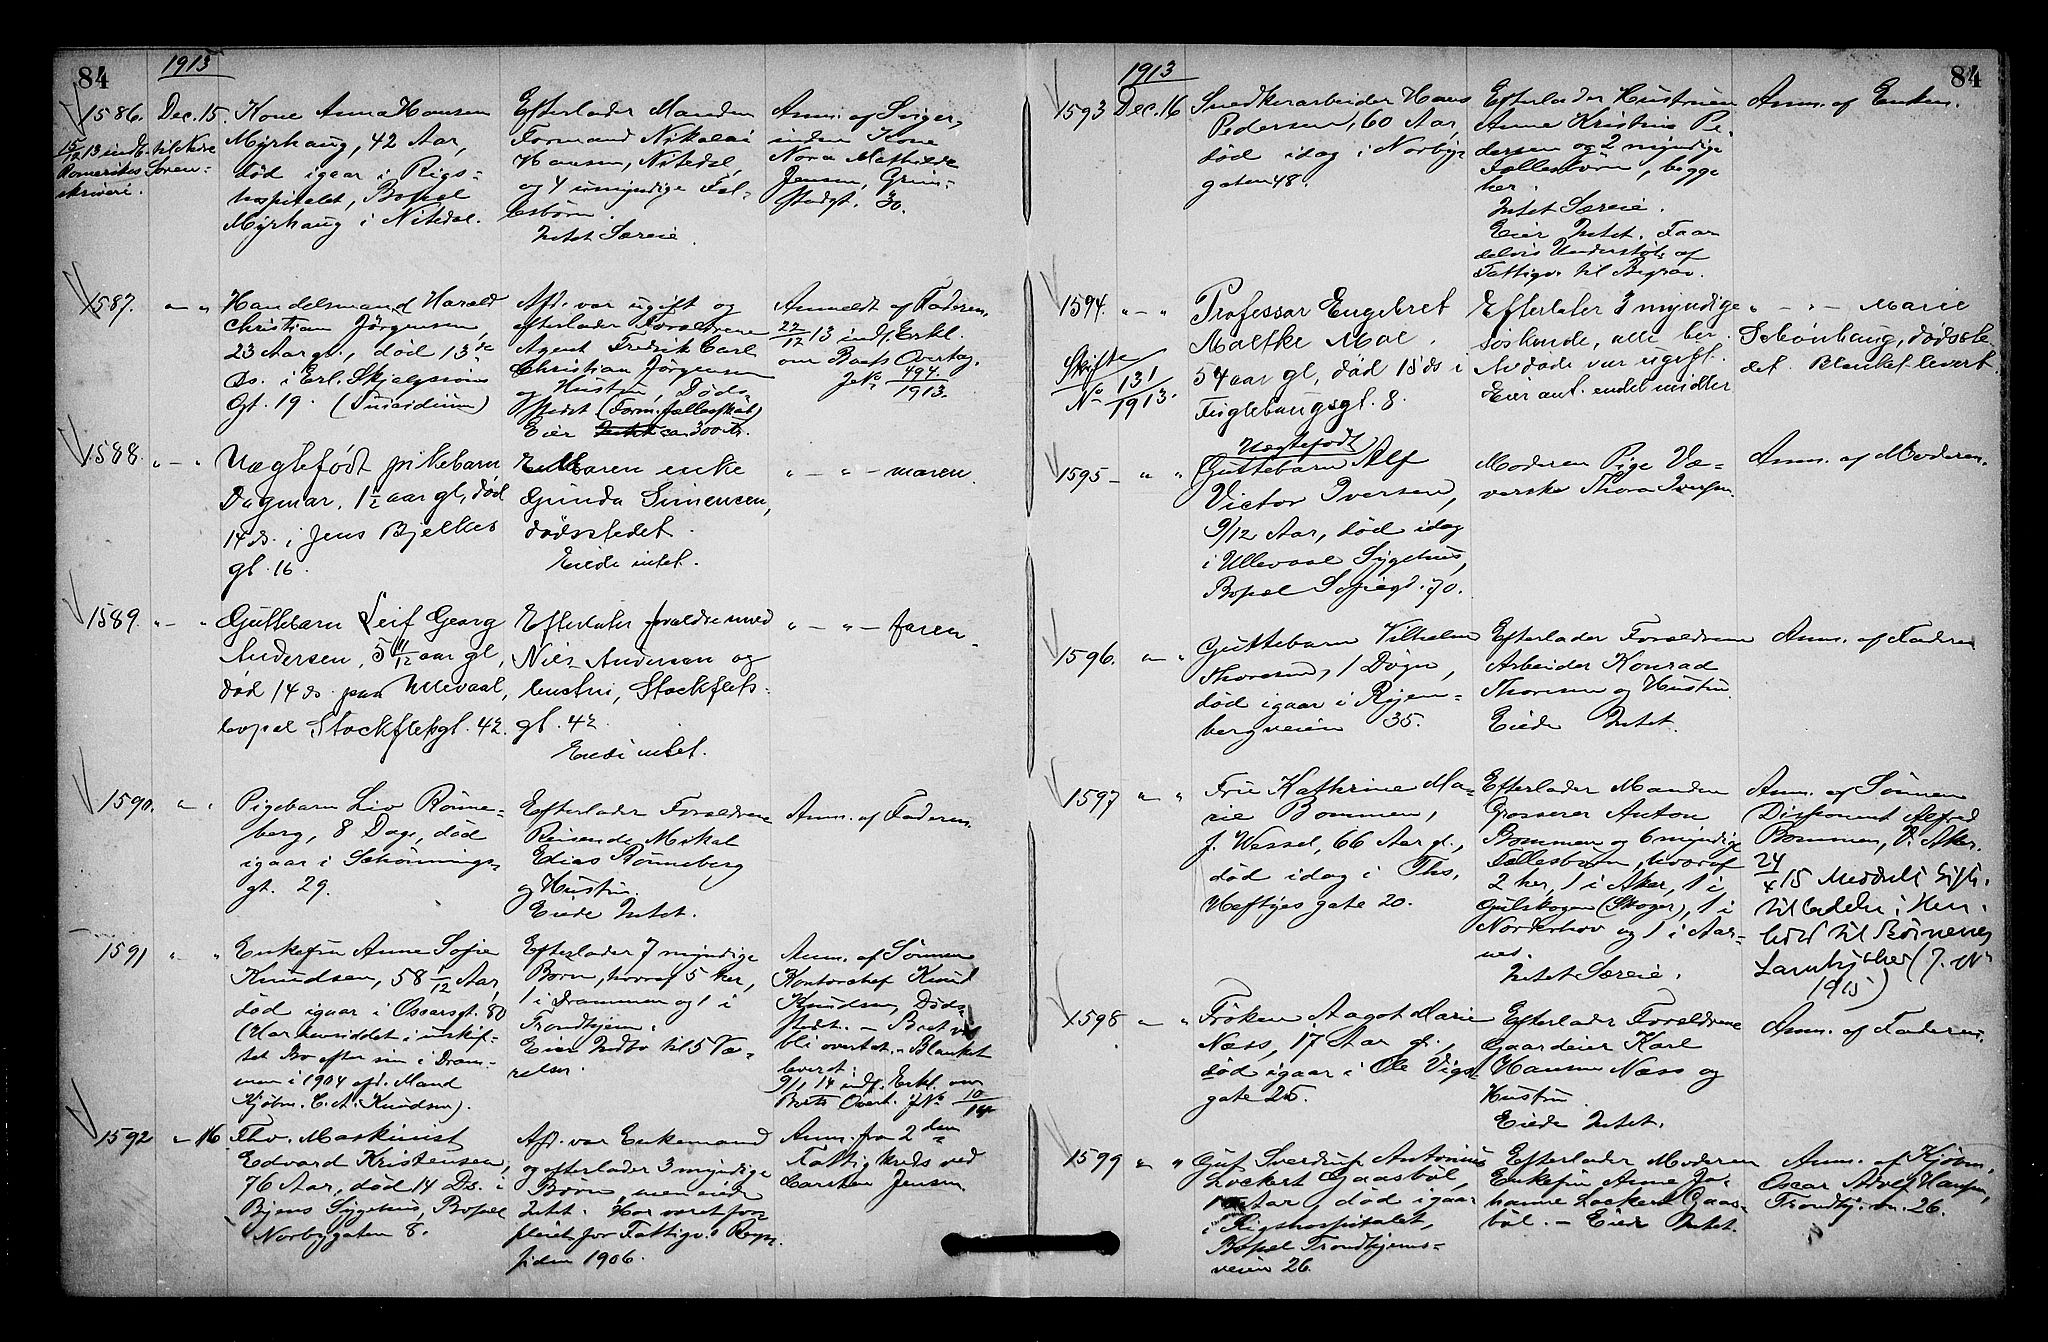 84
1913
1586. Dec. 15. Kone Anna Hansen
Myrhaug, 42 Aar,
død igaar i Rigs-
hospitalet, Bopæl
Myrhaug i Nitedal.
Efterlader Manden
Formand Nikolai
Hansen, Nitedal,
og 4 umyndige Fæl-
lesbørn.
Intet Særeie.
Anm. af Sviger-
inden Kone
Nora Mathilde
Jensen, Grim-
stadgt. 30.
15/12 13 indb. til Nedre
Romerikes Soren-
skriveri.
1587. " " Handelsmand Harald
Christian Jørgensen,
23 Aar gl., død 13de
ds. i Erl. Skjalgssøns
Gt. 19. (Suicidium)
Afd. var ugift og
efterlader Forældrene
Agent Fredrik Carl
Christian Jørgensen
og Hustru, Døds-
stedet (Form.fællesskab)
Eier Intet ca 300 Kr.
Anmeldt af Faderen.
22/12 13 indf. Erkl.
om Boets Overtag.
J.No. 494/1913.
1588. " - " Uægtefødt pikebarn
Dagmar, 1½ aar gl., død
14 ds. i Jens Bjelkes
gt. 16.
Moren enke
Gunda Simensen,
dødsstedet.
Eiede intet.
" - " - moren.
1589. " - " Guttebarn Leif Georg
Andersen, 5 11/12 aar gl,
død 14 ds. paa Ullevaal,
bopæl Stockfletsgt. 42.
Efterlater forældre med
Nils Andersen og
hustru, Stockflets-
gt. 42.
Eiede intet.
" - " - faren.
1590. " " Pigebarn Liv Rønne-
berg, 8 Dage, død
igaar i Schønnings-
gt. 29.
Efterlader Forældrene
Reisende Mikal
Edias Rønneberg
og Hustru.
Eiede Intet.
Anm. af Faderen.
1591 " " Enkefru Anne Sofie
Knudsen, 58 /12 Aar,
død igaar i Oscarsgt. 80
(Har hensiddet i uskif-
tet Bo efter sin i Dram-
men i 1904 afd. Mand
Kjøbm. C. A. Knudsen).
Efterlader 7 myndige
Børn, hvoraf 5 her,
1 i Drammen og 1 i
Trondhjem.
Eier Indbo til 5 Væ-
relser.
Anm. af Sønnen
Kontorchef Knud
Knudsen, Døds-
stedet. - Boet vil
bli overtat. - Blanket
levert.
9/1 14 indf. Erkl. om
Boets Overt. J.No. 10/14
1592 " 16 Fhv. Maskinist
Edvard Kristensen,
76 Aar, død 14 Ds. i
Byens Sygehus, Bopæl
Norbygaten 8.
Afd. var Enkemand
og efterlader 3 myndige
Børn, men eiede
Intet. Har været for-
pleiet for Fattigv.s Regn.
siden 1906.
Anm. fra 2den
Fattigkreds ved
Carsten Jensen
84
1913
1593 Dec. 16 Snedkerarbeider Hans
Pedersen, 60 Aar,
død idag i Norby-
gaten 48.
Efterlader Hustruen
Anne Kristine Pe-
dersen og 2 myndige
Fællesbørn, begge
her.
Intet Særeie.
Eier Intet. Faar
delvis Understøt. af
Fattigv. til Begrav.
Anm. af Enken.
1594. " - " Professor Engebret
Moltke Moe,
54 aar gl, død 15 ds i
Fuglehaugsgt. 8.
Efterlater 3 myndige
søskende, alle her.
Avdøde var ugift.
Eier ant. endel midler
" - " - Marie
Schønhaug, dødsste-
det. Blanket levert.
Skifte
No 131/1913.
1595 - " " Uægtefødt
Guttebarn Alf
Victor Iversen,
9/12 Aar, død idag
i Ullevaal Sygehus,
Bopæl Sofiegt. 70.
Moderen Pige Væ-
verske Thora Iversen.
Anm. af Moderen.
1596. " " Guttebarn Vilhelm
Thoresen, 1 Døgn,
død igaar i Ryen-
bergveien 35.
Efterlader Forældrene
Arbeider Konrad
Thoresen og Hustru.
Eiede Intet.
Anm. af Faderen
1597 " " Frue Kathrine Ma-
rie Bommen,
f. Wessel, 66 Aar gl.,
død idag i Ths.
Heftyes gate 20.
Efterlader Manden
Grosserer Anton
Bommen og 6 myndige
Fællesbørn, hvoraf
2 her, 1 i Aker, 1 i
Gulskogen (Skoger), 1 i
Norderhov og 1 i Aar-
nes.
Intet Særeie.
Anm. af Sønnen
Disponent Alfred
Bommen, V. Aker.
24/4 15 Meddelt
tilladelse i Hen-
hold til Børnenes
Samtykke (J. No
1915)
1598 " " Frøken Aagot Marie
Næss, 17 Aar gl.,
død igaar i Ole Vigs
gate 25.
Efterlader Forældrene
Gaardeier Karl
Hansen Næss og
Hustru.
Eiede Intet.
Anm. af Faderen.
1599 " " Gut Sverdrup Antonius
Lockert Gaasbøl,
Aar, død igaar
i Rigshospitalet,
Bopæl Trondhjems-
veien 26.
Efterlader Moderen
Enkefru Anne Jo-
hanne Lockert Gaas-
bøl. - Eier Intet.
Anm. af Kjøbm.
Oscar Adolf Hansen,
Trondhj.vn. 26.